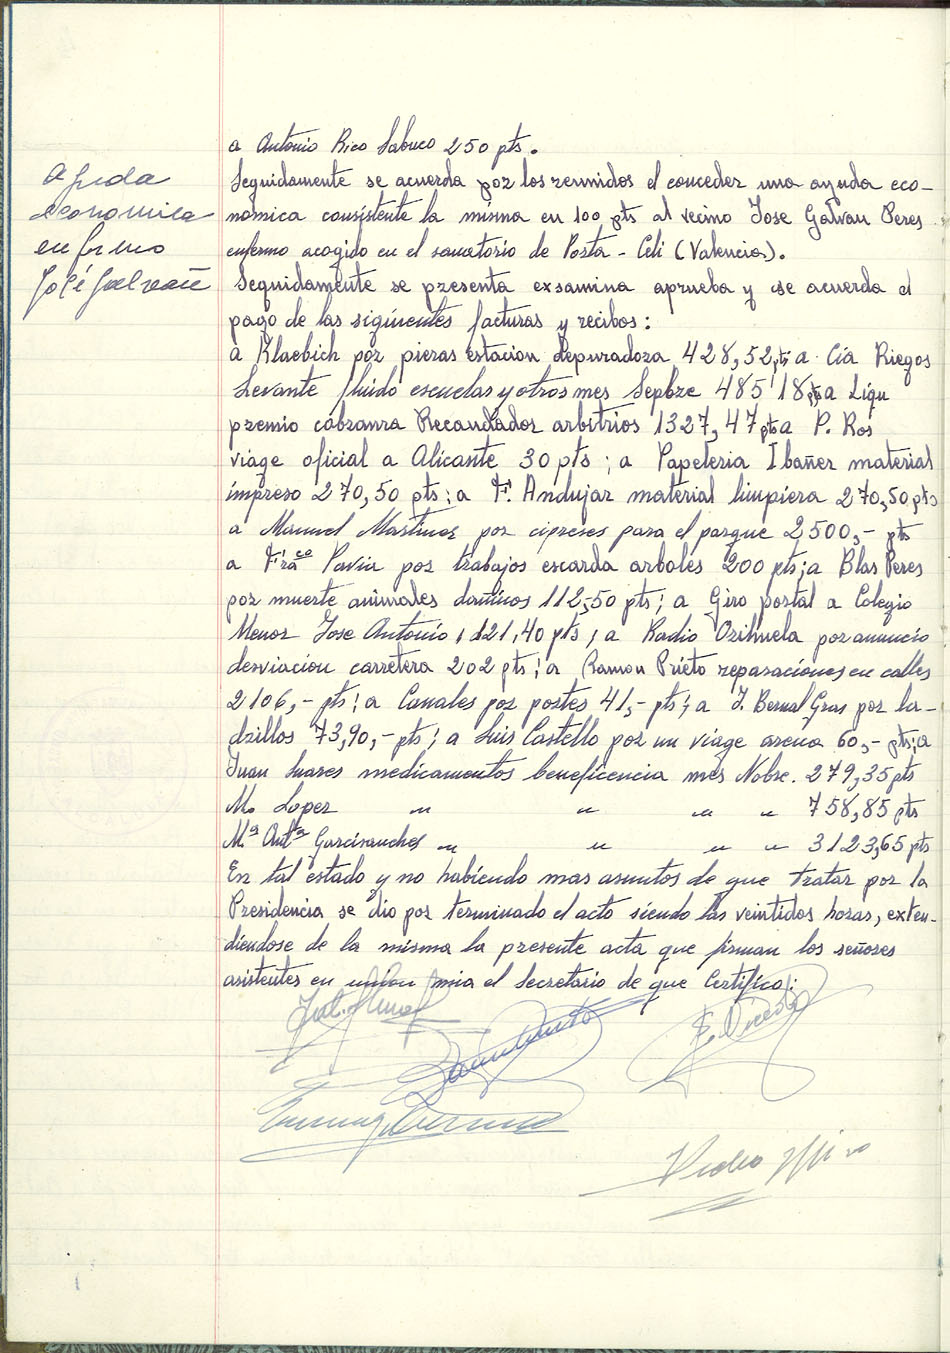 a Antonio Rico Sabuco 250 pts.
Ayuda
economica
enfermo
José Galvañ
Seguidamente se acuerda por los reunidos el conceder una ayuda eco-
nomica consistente la misma en 100 pts al vecino Jose Galvan Peres
enfermo acogido en el sanatorio de Porta-Celi (Valencia).
Seguidamente se presenta exsamina aprueba y se acuerda el
pago de las sigüientes facturas y recibos:
a Klaebich por piezas estacion depuradora 428,52 pts a Cia Riegos
Levante fluido escuelas y otros mes Sepbre 485'18 pts a Liqu
premio cobranza Recaudador arbitrios 1327,47 pts a P. Ros
viage oficial a Alicante 30 pts; a Papeteria Ibañez material
impreso 270,50 pts; a F. Andujar material limpieza 270,50 pts
a Manuel Martinez por cipreses para el parque 2500,- pts
a Fraco Pavia por trabajos escarda arboles 200 pts; a Blas Peres
por muerte animales dañinos 112,50 pts; a Giro portal a Colegio
Menor Jose Antonio, 121,40 pts; a Radio Orihuela por anuncio
desviacion carretera 202 pts; a Ramon Prieto reparaciones en calles
2106,- pts; a Canales por postes 41,- pts; a J. Bernal Gras por la-
drillos 73,90,- pts; a Luis Castello por un viage arena 60,- pts; a
Juan Suares medicamentos beneficencia mes Nobre. 279,35 pts
M. Lopez " " " " 758,85 pts
Mª Antª Garcisanches " " " " 3123,65 pts
En tal estado y no habiendo mas asuntos de que tratar por la
Presidencia se dio por terminado el acto siendo las veintidos horas, exten-
diendose de la misma la presente acta que firman los señores
asistentes en union mia el Secretario de que Certifico: